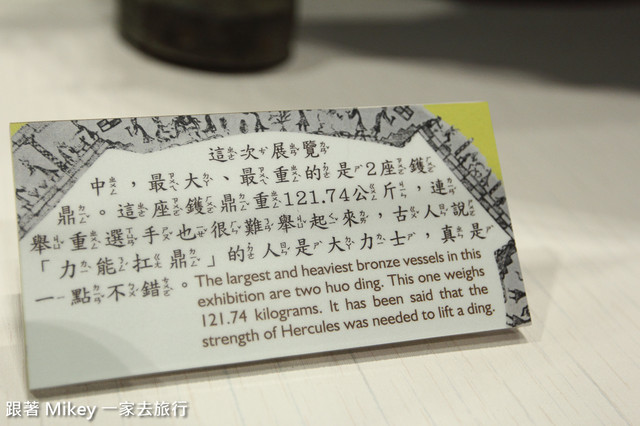 這次展覽
中，最大、最重的是2座鑊
鼎。這座鑊鼎重121.74公斤，連
舉重選手也很難舉起來，古人說
「力能扛鼎」的人是大力士，真是
一點不錯。
The largest and heaviest bronze vessels in this
exhibition are two huo ding. This one weighs
121.74 kilograms. It has been said that the
strength of Hercules was needed to lift a ding.
跟著 Mikey 一家去旅行